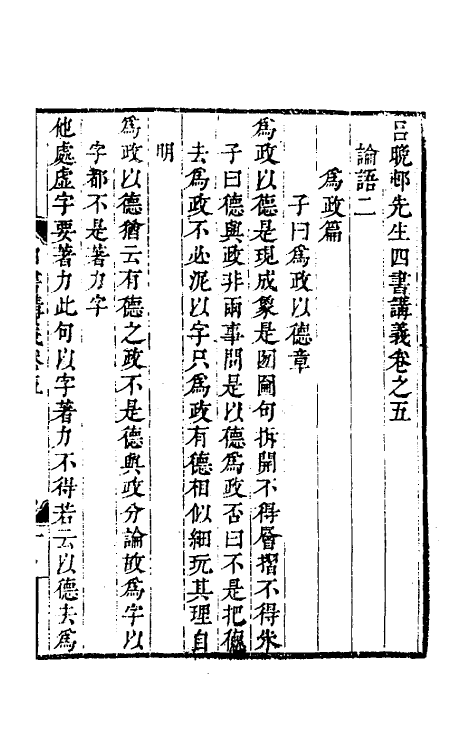 呂晚邨先生四書講義卷之五
論語二
爲政篇
子曰爲政以德章
爲政以德是現成象是囫圇句拆開不得層摺不得朱
子曰德與政非兩事問是以德爲政否曰不是把德
去爲政不必泥以字只爲政有德相似細玩其理自
明
爲政以德猶云有德之政不是德與政分論故爲字以
字都不是著力字
他處虛字要著力此句以字著力不得若云以德去爲